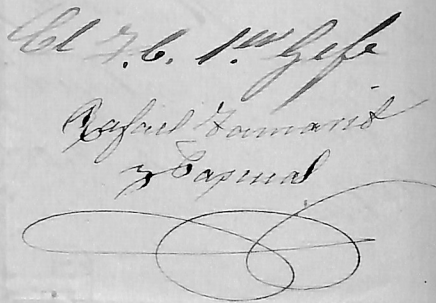 El T. C. 1.er Gefe
Rafael Tamarit
y Pascual